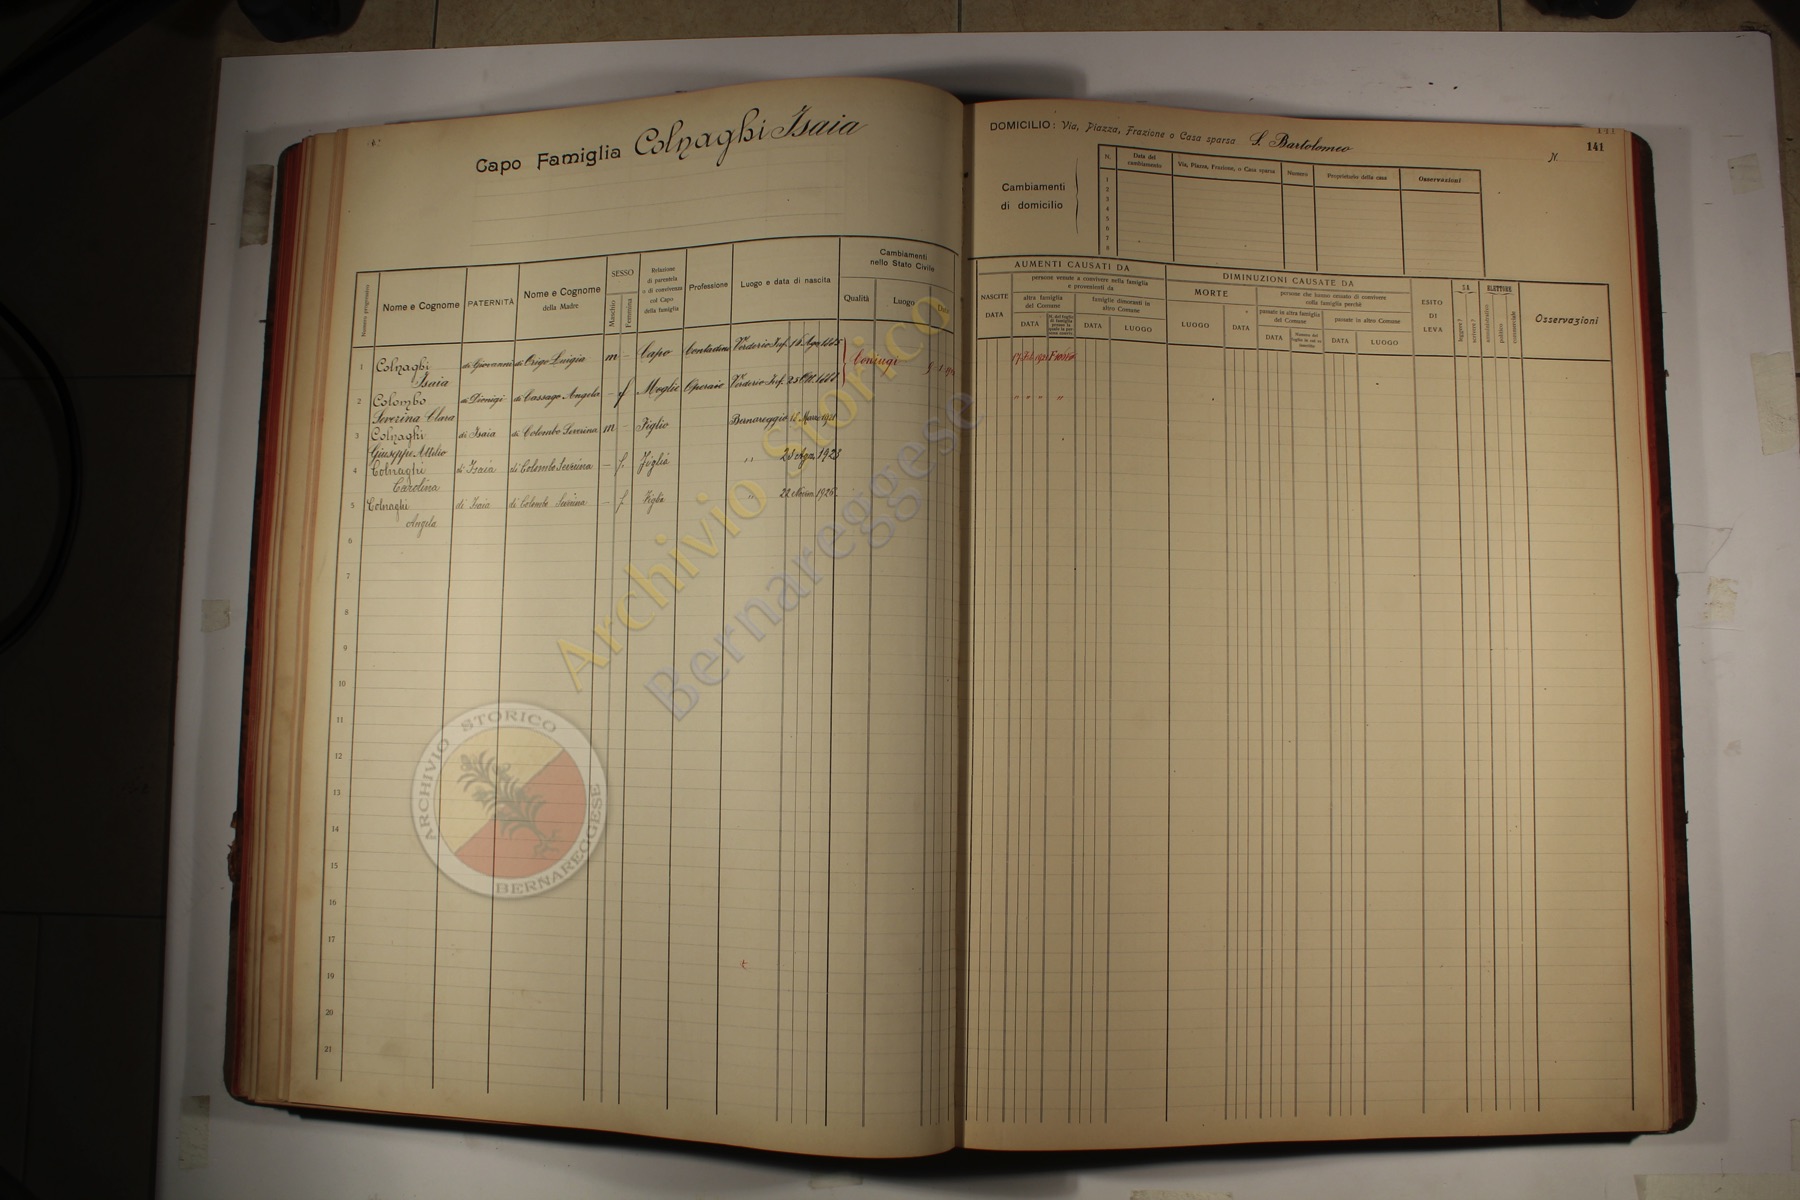 Capo Famiglia Colnaghi Isaia
DOMICILIO: Via, Piazza, Frazione o Casa sparsa S. Bartolomeo N. 141
Cambiamenti di domicilio
N. Data del cambiamento Via, Piazza, Frazione, o Casa sparsa Numero Proprietario della casa Osservazioni
1
2
3
4
5
6
7
8
Numero progressivo Nome e Cognome PATERNITÀ Nome e Cognome della Madre SESSO Maschio Femmina Relazione di parentela o di convivenza col Capo della famiglia Professione Luogo e data di nascita Cambiamenti nello Stato Civile Qualità Luogo Data
AUMENTI CAUSATI DA
NASCITE DATA
persone venute a convivere nella famiglia e provenienti da
altra famiglia del Comune DATA
famiglie dimoranti in altro Comune DATA LUOGO
DIMINUZIONI CAUSATE DA
MORTE LUOGO DATA
persone che hanno cessato di convivere colla famiglia perchè
passate in altra famiglia del Comune DATA
passate in altro Comune DATA LUOGO
ESITO DI LEVA
SA leggere? scrivere?
ELETTORE amministrativo politico commerciale
Osservazioni
1 Colnaghi Isaia di Giovanni di Origo Luigia m – Capo Contadino Verderio Inf. Coniugi
2 Colombo Severina Clara di Dionigi di Cassago Angela – f Moglie Operaia Verderio Inf.
3 Colnaghi Giuseppe Attilio di Isaia di Colombo Severina m – Figlio Bernareggio
4 Colnaghi Carolina di Isaia di Colombo Severina – f. Figlia ,,
5 Colnaghi Angela di Isaia di Colombo Severina – f. Figlia "
6
7
8
9
10
11
12
13
14
15
16
17
18
19
20
21
Archivio Storico
Bernareggese
ARCHIVIO STORICO BERNAREGGESE